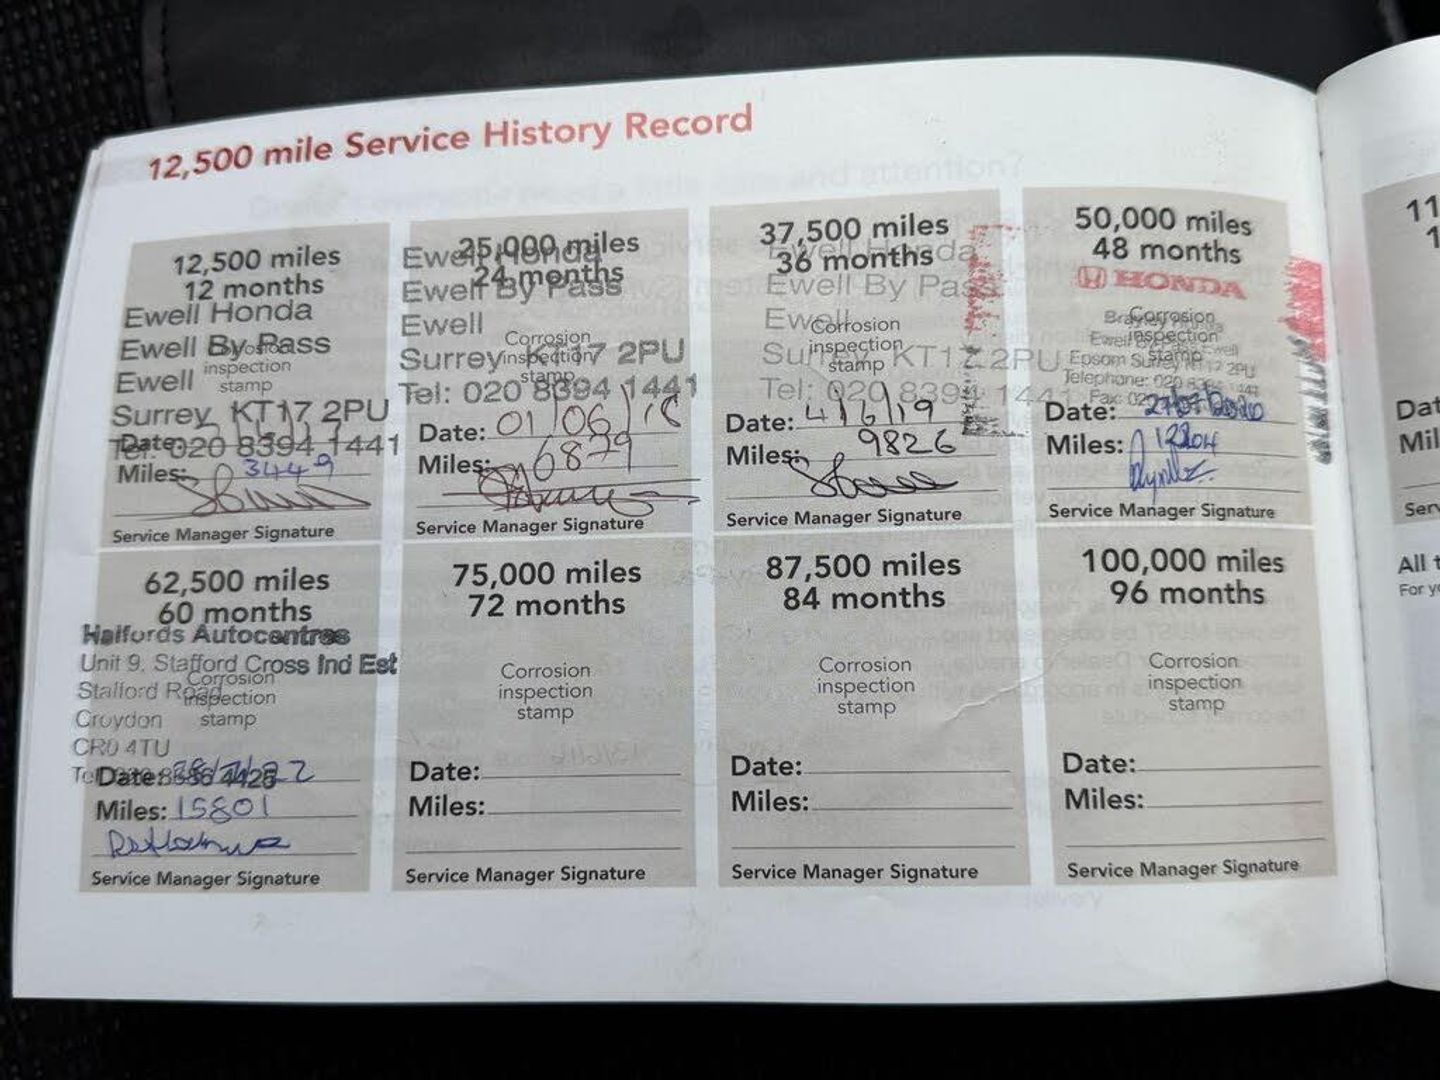 12,500 mile Service History Record
12,500 miles
12 months
Ewell Honda
Ewell By Pass
Ewell
Surrey KT17 2PU
Tel: 020 8394 1441
Corrosion
inspection
stamp
Date:
Miles: 3449
Service Manager Signature
25,000 miles
24 months
Ewell Honda
Ewell By Pass
Ewell
Surrey KT17 2PU
Tel: 020 8394 1441
Corrosion
inspection
stamp
Date: 01/06/18
Miles: 6879
Service Manager Signature
37,500 miles
36 months
Ewell Honda
Ewell By Pass
Ewell
Surrey KT17 2PU
Tel: 020 8394 1441
Corrosion
inspection
stamp
Date: 4/6/19
Miles: 9826
Service Manager Signature
50,000 miles
48 months
HONDA
Corrosion
inspection
stamp
Epsom Surrey KT17 2PU
Telephone: 020
Fax: 020
Date: 27/07/2020
Miles: 12204
Service Manager Signature
62,500 miles
60 months
Halfords Autocentres
Unit 9, Stafford Cross Ind Est
Stafford Road
Croydon
CR0 4TU
Corrosion
inspection
stamp
Date:
Miles: 15801
Service Manager Signature
75,000 miles
72 months
Corrosion
inspection
stamp
Date:
Miles:
Service Manager Signature
87,500 miles
84 months
Corrosion
inspection
stamp
Date:
Miles:
Service Manager Signature
100,000 miles
96 months
Corrosion
inspection
stamp
Date:
Miles:
Service Manager Signature
11
1
Dat
Mil
Serv
All t
For y